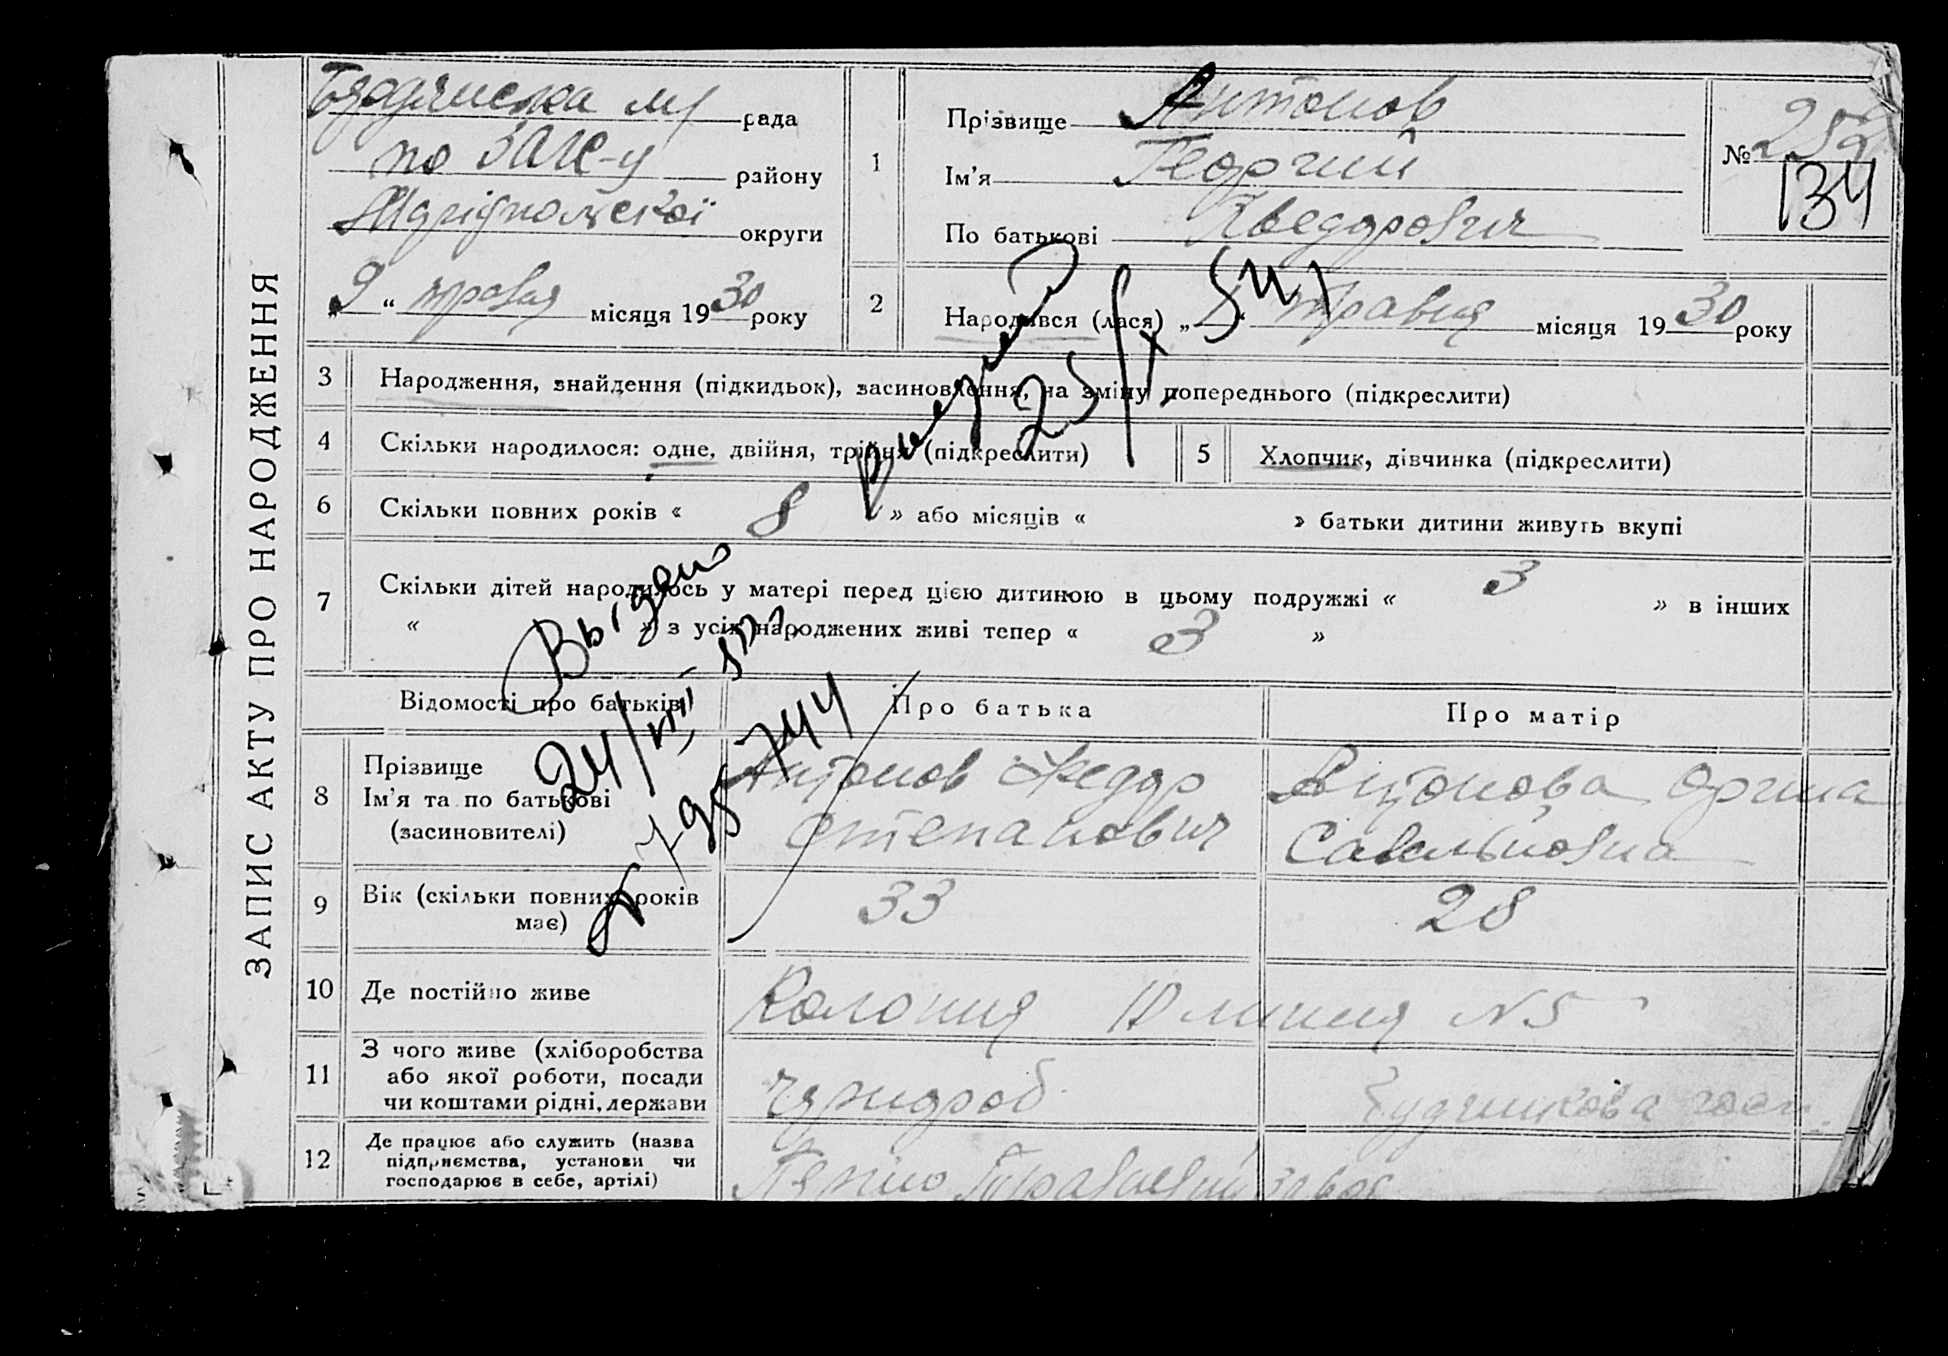 ЗАПИС АКТУ ПРО НАРОДЖЕННЯ
рада
по ЗАГС-у району
Маріупольської округи
„9“ травня місяця 1930 року
1
Прізвище Антонов
Ім’я Георгий
По батькові Хведорович
№ 252
134
2
Народився (лася) „ “ травня місяця 1930 року
3 Народження, знайдення (підкидьок), засиновлення, на зміну попереднього (підкреслити)
4 Скільки народилося: одне, двійня, трійня (підкреслити)
5 Хлопчик, дівчинка (підкреслити)
6 Скільки повних років « 8 » або місяців « » батьки дитини живуть вкупі
7 Скільки дітей народилось у матері перед цією дитиною в цьому подружжі « 3 » в інших
« » з усіх народжених живі тепер « 3 »
Выдано
24/VII
744
25/X 54
Відомості про батьків
Про батька
Про матір
8 Прізвище
Ім’я та по батькові
(засиновителі)
Антонов Федор
Степанович
Антонова Орина
Савельйовна
9 Вік (скільки повних років
має)
33
28
10 Де постійно живе
Колония 10 линия N 5
11 З чого живе (хліборобства
або якої роботи, посади
чи коштами рідні, держави
чорнороб
12 Де працює або служить (назва
підприємства, установи чи
господарює в себе, артілі)
завод